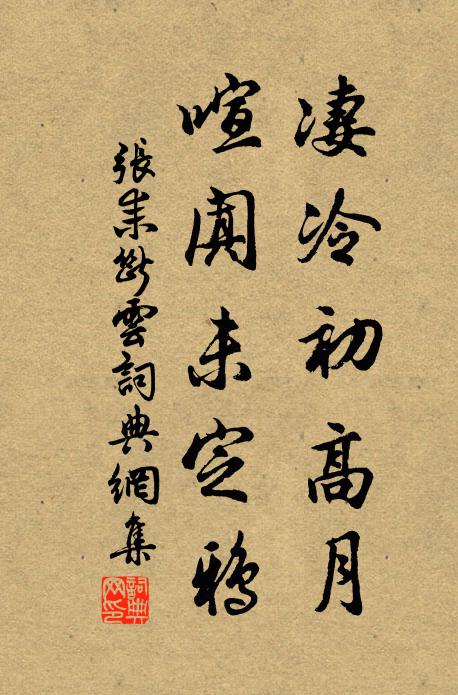 凄冷初高月
喧闐未定鴉
張耒斷雲詞典網集
詞典網印